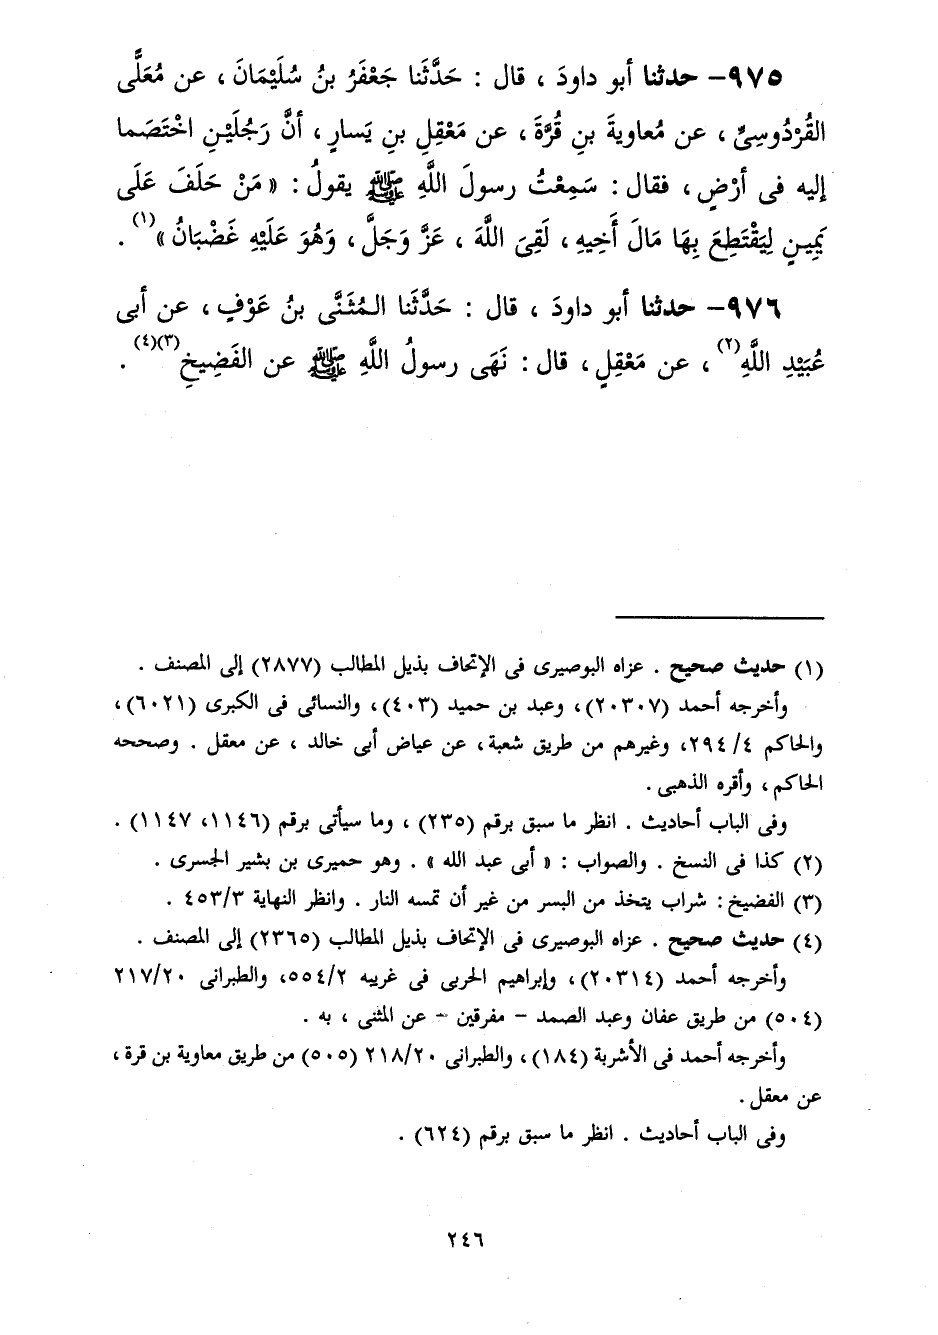 ٩٧٥- حدثنا أبو داودَ ، قال : حَدَّثَنا جَعْفَرُ بنُ سُلَيْمَانَ ، عن مُعَلَّى
القُرْدُوسِيِّ ، عن مُعاويةَ بنِ قُرَّةَ ، عن مَعْقِلِ بنِ يَسارٍ ، أنَّ رَجُلَيْنِ اخْتَصَما
إليه فى أرْضٍ ، فقال : سَمِعْتُ رسولَ اللَّهِ ﷺ يقولُ : « مَنْ حَلَفَ عَلَى
يَمِينٍ لِيَقْتَطِعَ بِهَا مَالَ أَخِيهِ ، لَقِىَ اللَّهَ ، عَزَّ وَجَلَّ ، وَهُوَ عَلَيْهِ غَضْبَانُ »(١) .
٩٧٦- حدثنا أبو داودَ ، قال : حَدَّثَنا المُثَنَّى بنُ عَوْفٍ ، عن أبى
عُبَيْدِ اللَّهِ(٢) ، عن مَعْقِلٍ ، قال : نَهَى رسولُ اللَّهِ ﷺ عن الفَضِيخِ(٣)(٤) .
(١) حديث صحيح . عزاه البوصيرى فى الإتحاف بذيل المطالب (٢٨٧٧) إلى المصنف .
وأخرجه أحمد (٢٠٣٠٧) ، وعبد بن حميد (٤٠٣) ، والنسائى فى الكبرى (٦٠٢١) ،
والحاكم ٢٩٤/٤، وغيرهم من طريق شعبة ، عن عياض أبى خالد ، عن معقل . وصححه
الحاكم ، وأقره الذهبى .
وفى الباب أحاديث . انظر ما سبق برقم (٢٣٥) ، وما سيأتى برقم (١١٤٦، ١١٤٧) .
(٢) كذا فى النسخ . والصواب : « أبى عبد الله » . وهو حميرى بن بشير الجسرى .
(٣) الفضيخ : شراب يتخذ من البسر من غير أن تمسه النار . وانظر النهاية ٤٥٣/٣ .
(٤) حديث صحيح . عزاه البوصيرى فى الإتحاف بذيل المطالب (٢٣٦٥) إلى المصنف .
وأخرجه أحمد (٢٠٣١٤) ، وإبراهيم الحربى فى غريبه ٥٥٤/٢، والطبرانى ٢١٧/٢٠
(٥٠٤) من طريق عفان وعبد الصمد - مفرقين - عن المثنى ، به .
وأخرجه أحمد فى الأشربة (١٨٤) ، والطبرانى ٢١٨/٢٠ (٥٠٥) من طريق معاوية بن قرة ،
عن معقل .
وفى الباب أحاديث . انظر ما سبق برقم (٦٢٤) .
٢٤٦